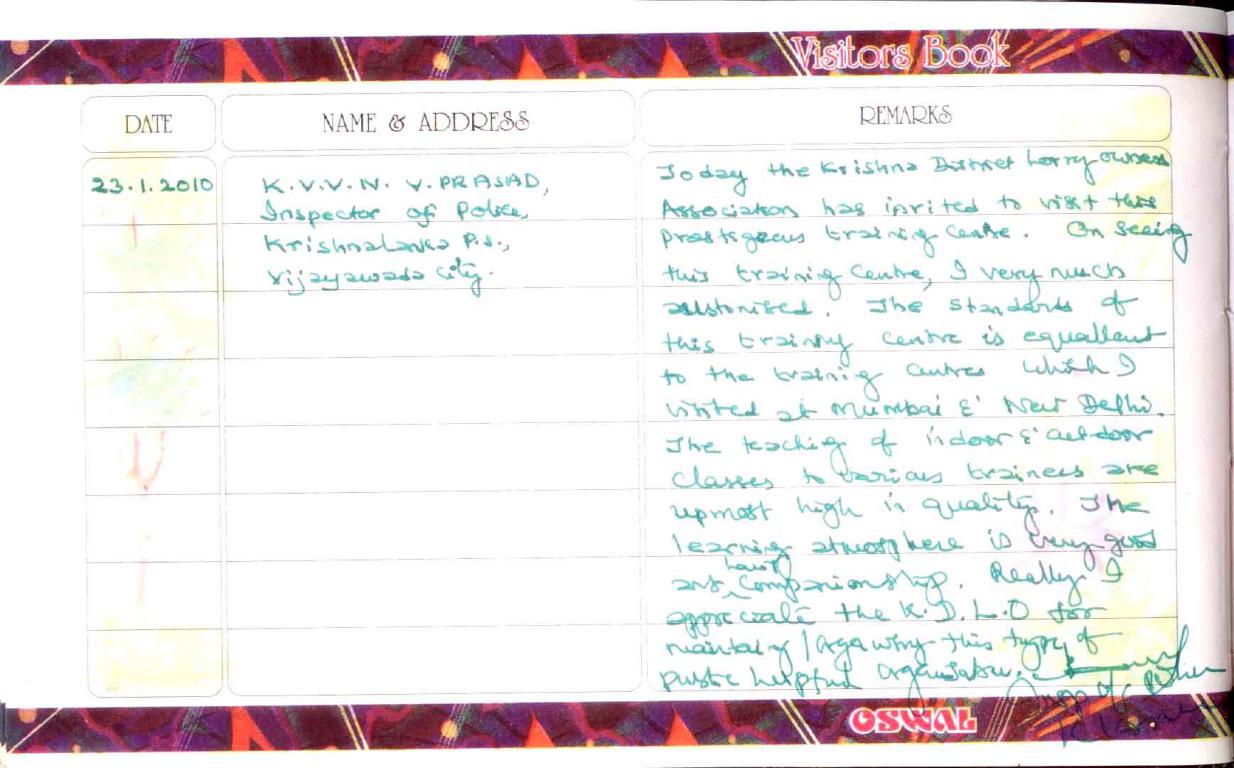 Visitors Book
DATE
NAME & ADDRESS
REMARKS
23.1.2010
K.V.V.N.V.PRASAD,
Inspector of Police,
Krishnalanka P.S.,
Vijayawada City.
Today the Krishna District Lorry owners
Association has invited to visit this
prestigeous training centre. On seeing
this training Centre, I very much
The Standards of
this training centre is equallent
to the training centres which I
visited at Mumbai & New Delhi.
The teaching of indoor & out-door
classes to various trainees are
upmost high in quality. The
learning atmosphere is very good
companionship. Really I
appreciate the K.D.L.O for
this type of
public helpful organisation.
OSWAL